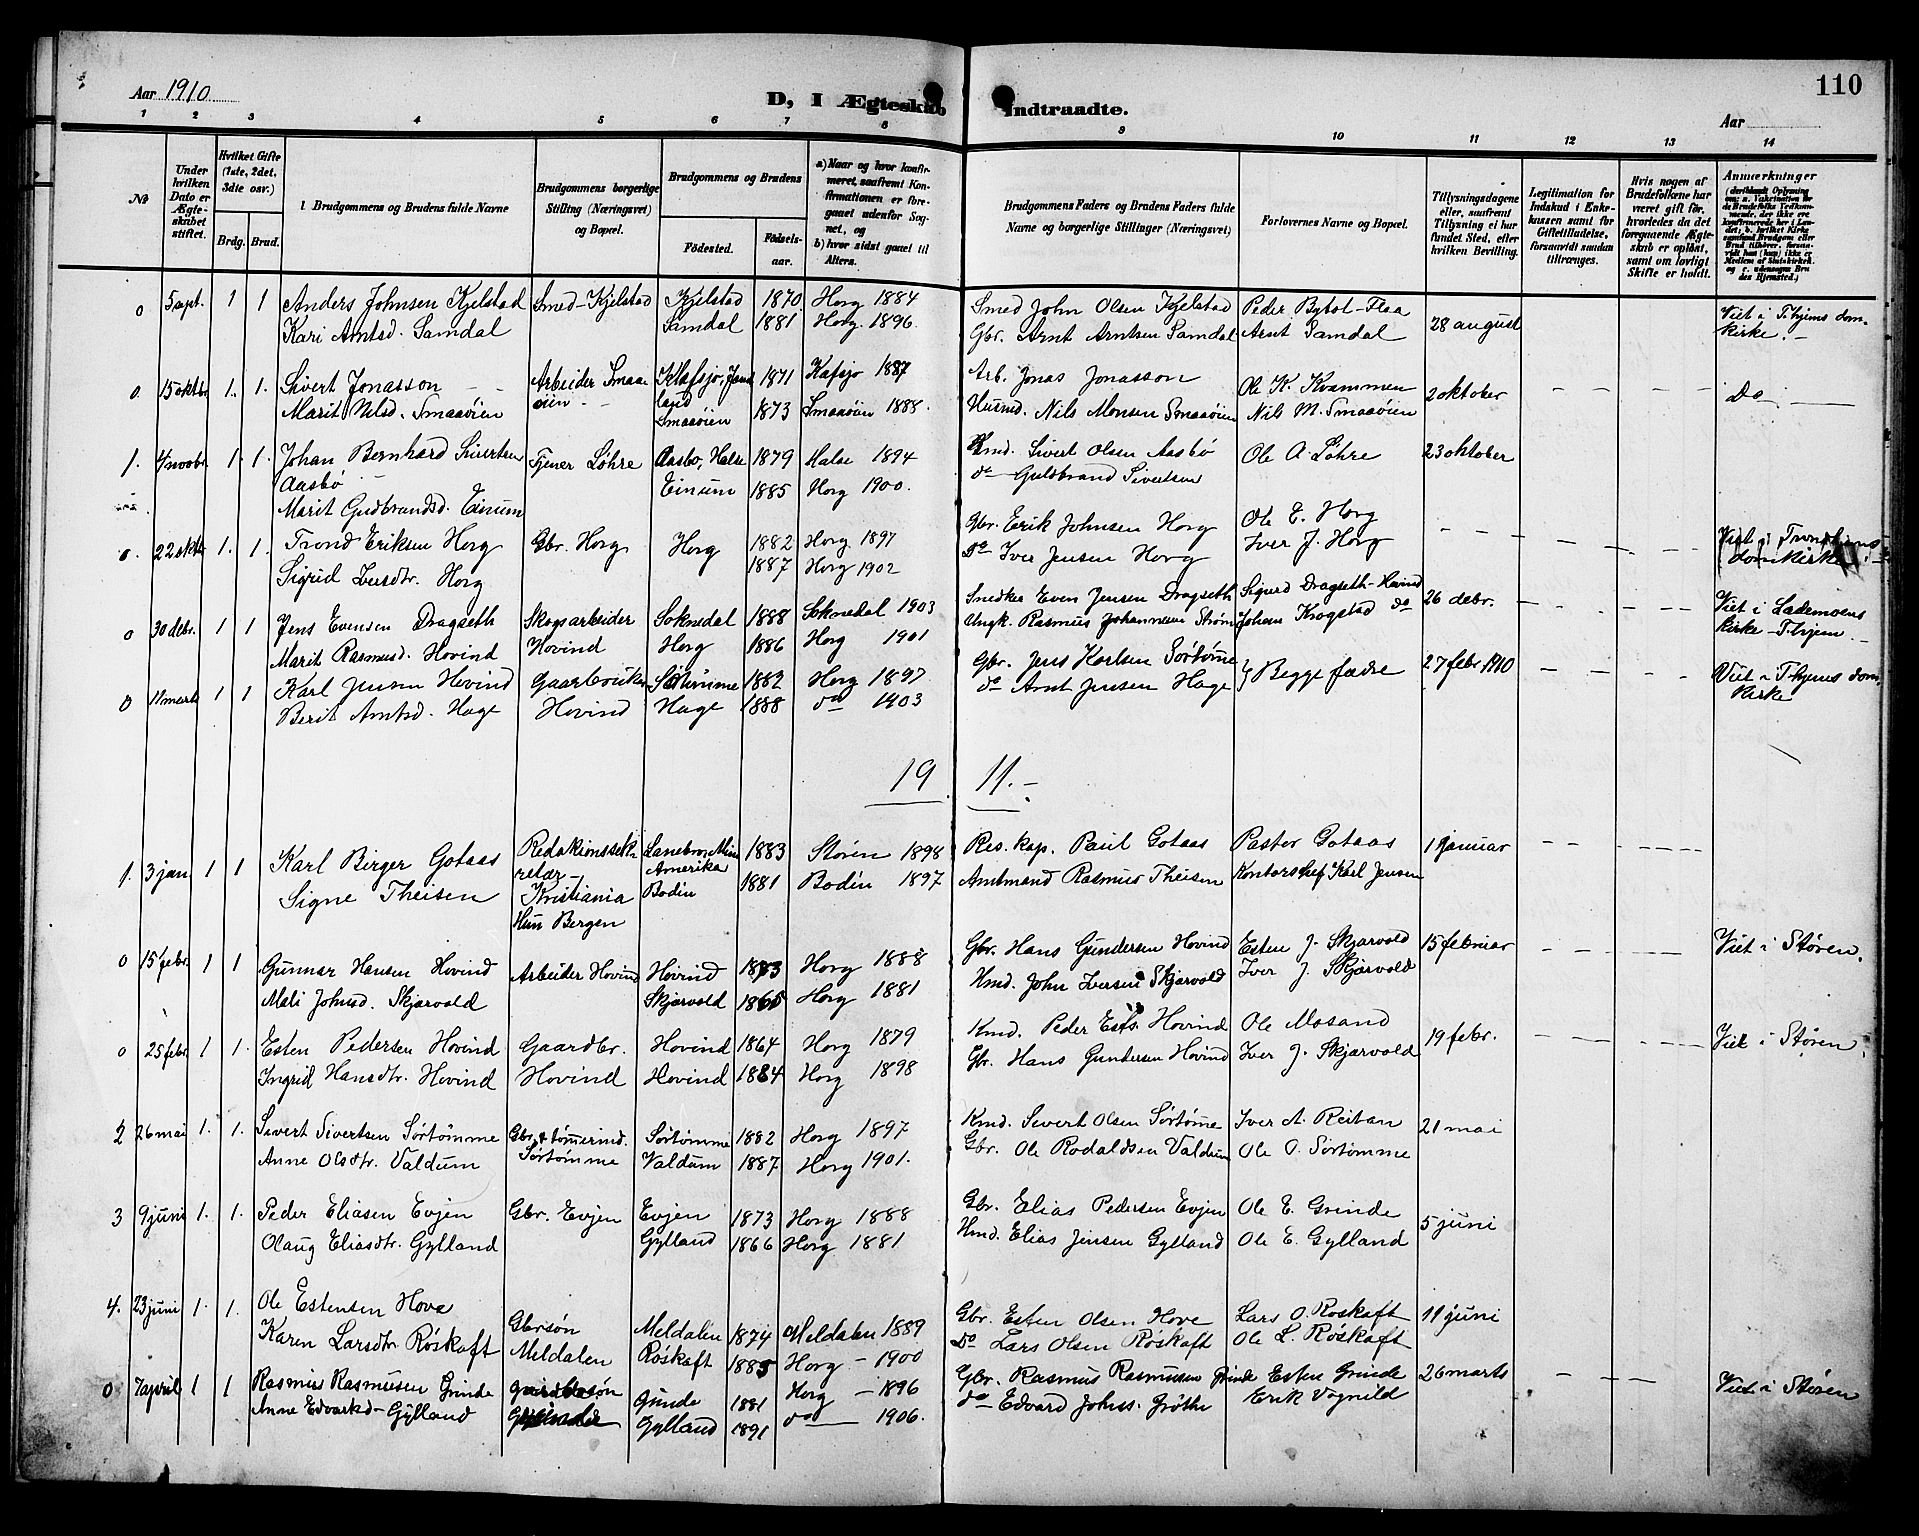 Aar 1910
D, I Ægteskab Indtraadte.
110
Aar
1 2 3 4 5 6 7 8 9 10 11 12 13 14
No
Under hvilken Dato er Ægteskabet stiftet.
Hvilket Gifte (1ste, 2det, 3die osv.)
Brdg. Brud.
Brudgommens og Brudens fulde Navne
Brudgommens borgerlige Stilling (Næringsvei) og Bopæl.
Brudgommens og Brudens
Fødested.
Fødsels-aar.
a) Naar og hvor konfirmeret, saafremt Konfirmationen er foregaaet udenfor Sognet, og
b) hvor sidst gaaet til Alters.
Brudgommens Faders og Brudens Faders fulde Navne og borgerlige Stillinger (Næringsvei)
Forlovernes Navne og Bopæl.
Tillysningsdagene eller, saafremt Tillysning ei har fundet Sted, efter hvilken Bevilling.
Legitimation for Indskud i Enkekassen samt for Giftetilladelse, forsaavidt saadan tiltrænges.
Hvis nogen af Brudefolkene har været gift før, hvorledes da det foregaaende Ægteskab er opløst, samt om lovligt Skifte er holdt.
Anmærkninger
0 5 spt. 1 1 Anders Johnsen Kjelstad Smed-Kjelstad Kjelstad 1870 Horg 1884 Smed John Olsen Kjelstad Peder Bytot-Flaa 28 august Viet i Thjems dom-
Kari Arntsd. Samdal Samdal 1881 Horg. 1896. Gbr. Arnt Arntsen Samdal Arnt Samdal kirke.-
0. 15 oktbr 1. 1. Sivert Jonasson Arbeider Smaa- 1871 Kafsjo 1887 Arb. Jonas Jonasson Ole K. Kvammen 2 oktober Do
Marit Nilsd. Smaaøien øien Smaaøien 1873 Smaaøien 1888. Husmd. Nils Monsen Smaaøien Nils M. Smaaøien
1. 4 novbr. 1. 1. Johan Bernhard Sivertsen Tjener Løhre Aasbø, Halse 1879 Halse 1894 Kmd. Sivert Olsen Aasbø Ole A. Løhre 23 oktober
Aasbø
Marit Gudbrandsd. Einum Einum 1885 Horg 1900. do Guldbrand Sivertsen
0. 22 oktr 1. 1. Trond Eriksen Horg Gbr. Horg Horg 1882 Horg 1897 Gbr. Erik Johnsen Horg Ole E. Horg Viet i Trondhjems
Sigrid Iversdtr. Horg 1887 Horg 1902 Do Iver Jensen Horg Iver J. Horg domkirke.
0 30 debr. 1 1 Jens Evensen Dragseth Skogsarbeider Soknedal 1888 Soknedal 1903 Snedker Even Jensen Dragseth Sigurd Dragseth-Hovind 26 debr. Viet i Lademoens
Marit Rasmusd. Hovind Hovind Horg 1886 Horg 1901 Ungk. Rasmus Johannesen Strøm Johan Krogstad do kirke - Thjem.-
0 11 marts 1 1 Karl Jensen Hovind Gaarbruker Sørtømme 1882 Horg 1897 Gbr. Jens Karlsen Sørtømme Begge fædre 27 febr 1910 Viet i Thjems dom-
Berit Arntsd. Hage Hovind Hage 1888 do 1903 do Arnt Jensen Hage kirke
19 11.-
1. 3 jan 1 1 Karl Birger Gotaas Redaktionssek- Lanebron, Minn 1883 Støren 1898 Res. kap. Paul Gotaas Pastor Gotaas 1 januar
retær - Amerika
Signe Theisen Kristiania Bodin 1881 Bodin 1897 Amtmand Rasmus Theisen Kontorschef Karl Jensen
Hun Bergen
0 15 febr. 1 1 Gunnar Hansen Hovind Arbeider Hovind Hovind 1873 Horg 1888 Gbr. Hans Gundersen Hovind Esten J. Skjærvold 15 februar Viet i Støren.
Mali Johnsd. Skjærvold Skjærvold 1865 Horg 1881 Kmd. John Iversen Skjærvold Iver J. Skjærvold
0 25 febr. 1 1. Esten Pedersen Hovind Gaardbr. Hovind 1864 Horg 1879 Kmd. Peder Ests. Hovind Ole Mosand 19 febr. Viet i Støren.
Ingrid Hansdtr. Hovind Hovind Hovind 1884 Horg 1898 Gbr. Hans Gundersen Hovind Iver J. Skjærvold
2 26 mai 1. 1. Sivert Sivertsen Sørtømme Gbr. & tømmermd. Sørtømme 1882 Horg 1897 Kmd. Sivert Olsen Sørtømme Iver A. Reitan 21 mai
Anne Olsdtr. Valdum Sørtømme Valdum 1887 Horg 1901. Gbr. Ole Rodaldsen Valdum Ole O. Sørtømme
3 9 juni 1. 1. Peder Eliasen Evjen Gbr. Evjen Evjen 1873 Horg 1888 Gbr. Elias Pedersen Evjen Ole E. Grinde 5 juni
Olaug Eliasdtr. Gylland Gylland 1866 Horg 1881 Kmd. Elias Jensen Gylland Ole E. Gylland
4. 23 juni 1. 1. Ole Estensen Hove Gbrsøn Meldalen 1874 Meldalen 1889 Gbr. Esten Olsen Hove Lars O. Røskaft 11 juni
Karen Larsdtr Røskaft Meldalen Røskaft 1885 Horg - 1900 Do Lars Olsen Røskaft Ole L. Røskaft
0 7 april 1 1 Rasmus Rasmusen Grinde Grinde 1881 Horg - 1896 Gbr. Rasmus Rasmussen Grinde Esten Grinde 26 marts Viet i Støren
Anne Edvarksd- Gylland Gylland 1891 do - 1906. do Edvard Johns. Grøthe Erik Vognild